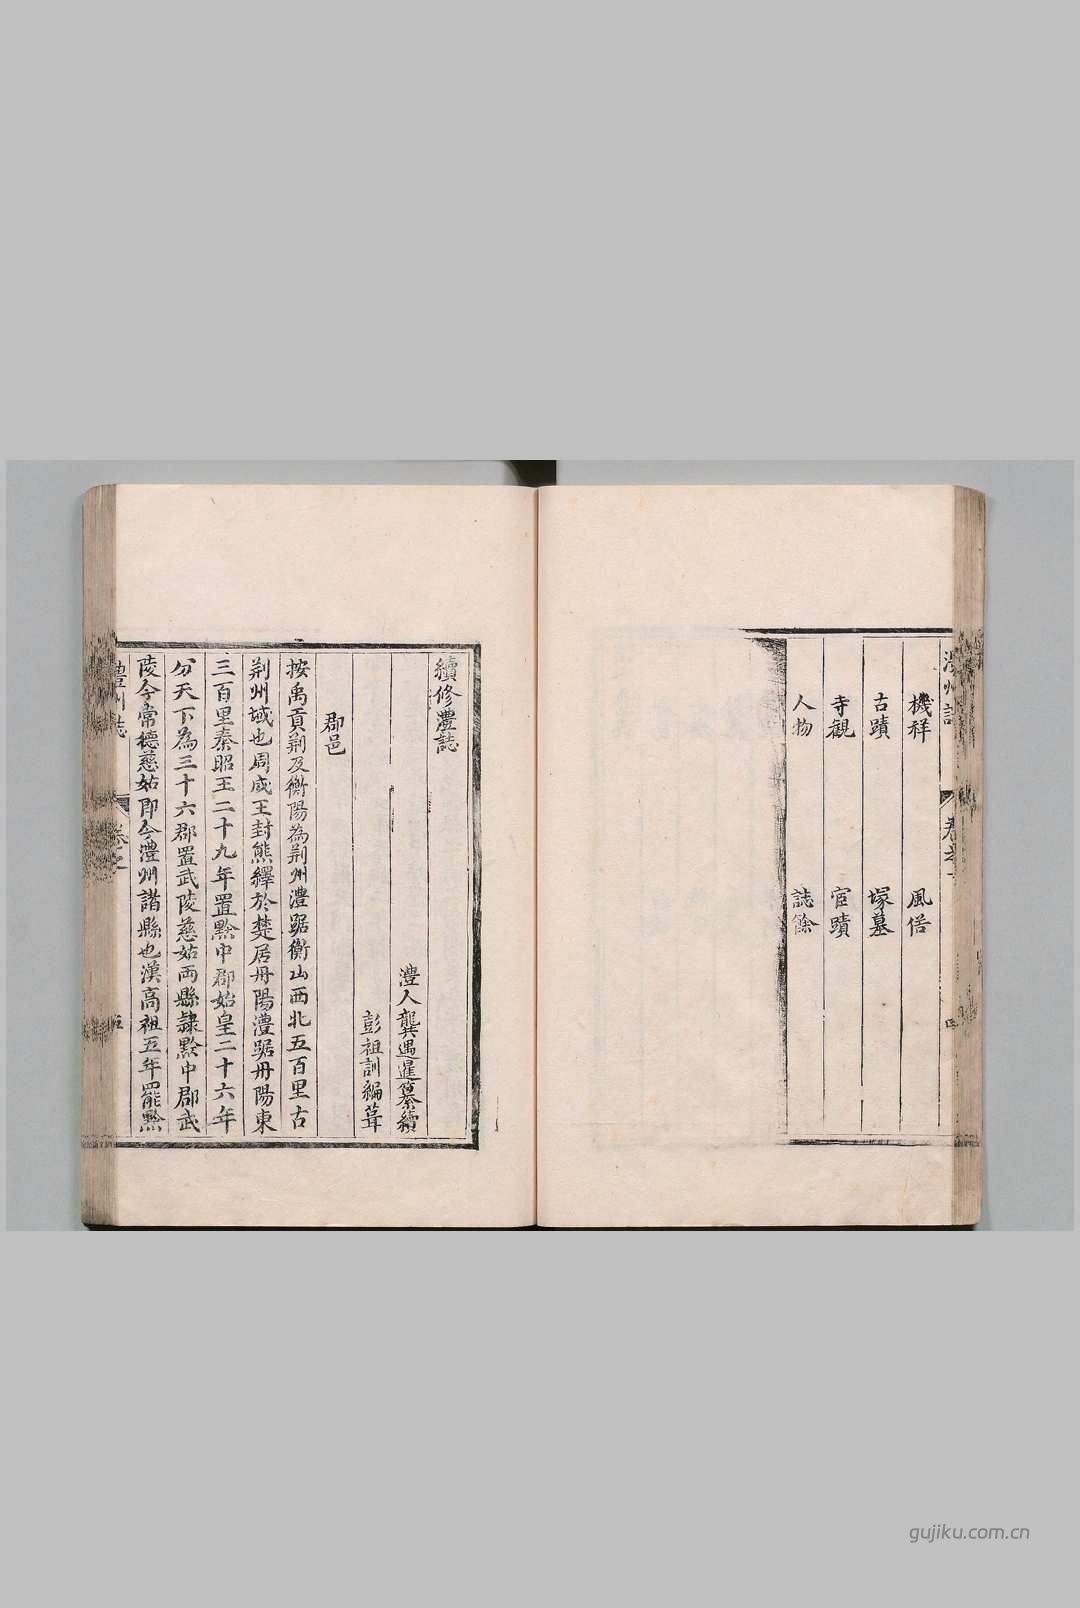 澧州誌
卷之一
四
機祥 風俗
古蹟 塚墓
寺觀 宦蹟
人物 誌餘
續修澧誌
澧人龔遇暹纂續
彭祖訓編葺
郡邑
按禹貢荆及衡陽為荆州澧踞衡山西北五百里古
荆州域也周成王封熊繹於楚居丹陽澧踞丹陽東
三百里秦昭王二十九年置黔中郡始皇二十六年
分天下為三十六郡置武陵慈姑两縣隷黔中郡武
陵今常德慈姑即今澧州諸縣也漢高祖五年罷黔
澧州誌
卷之
五
gujiku.com.cn